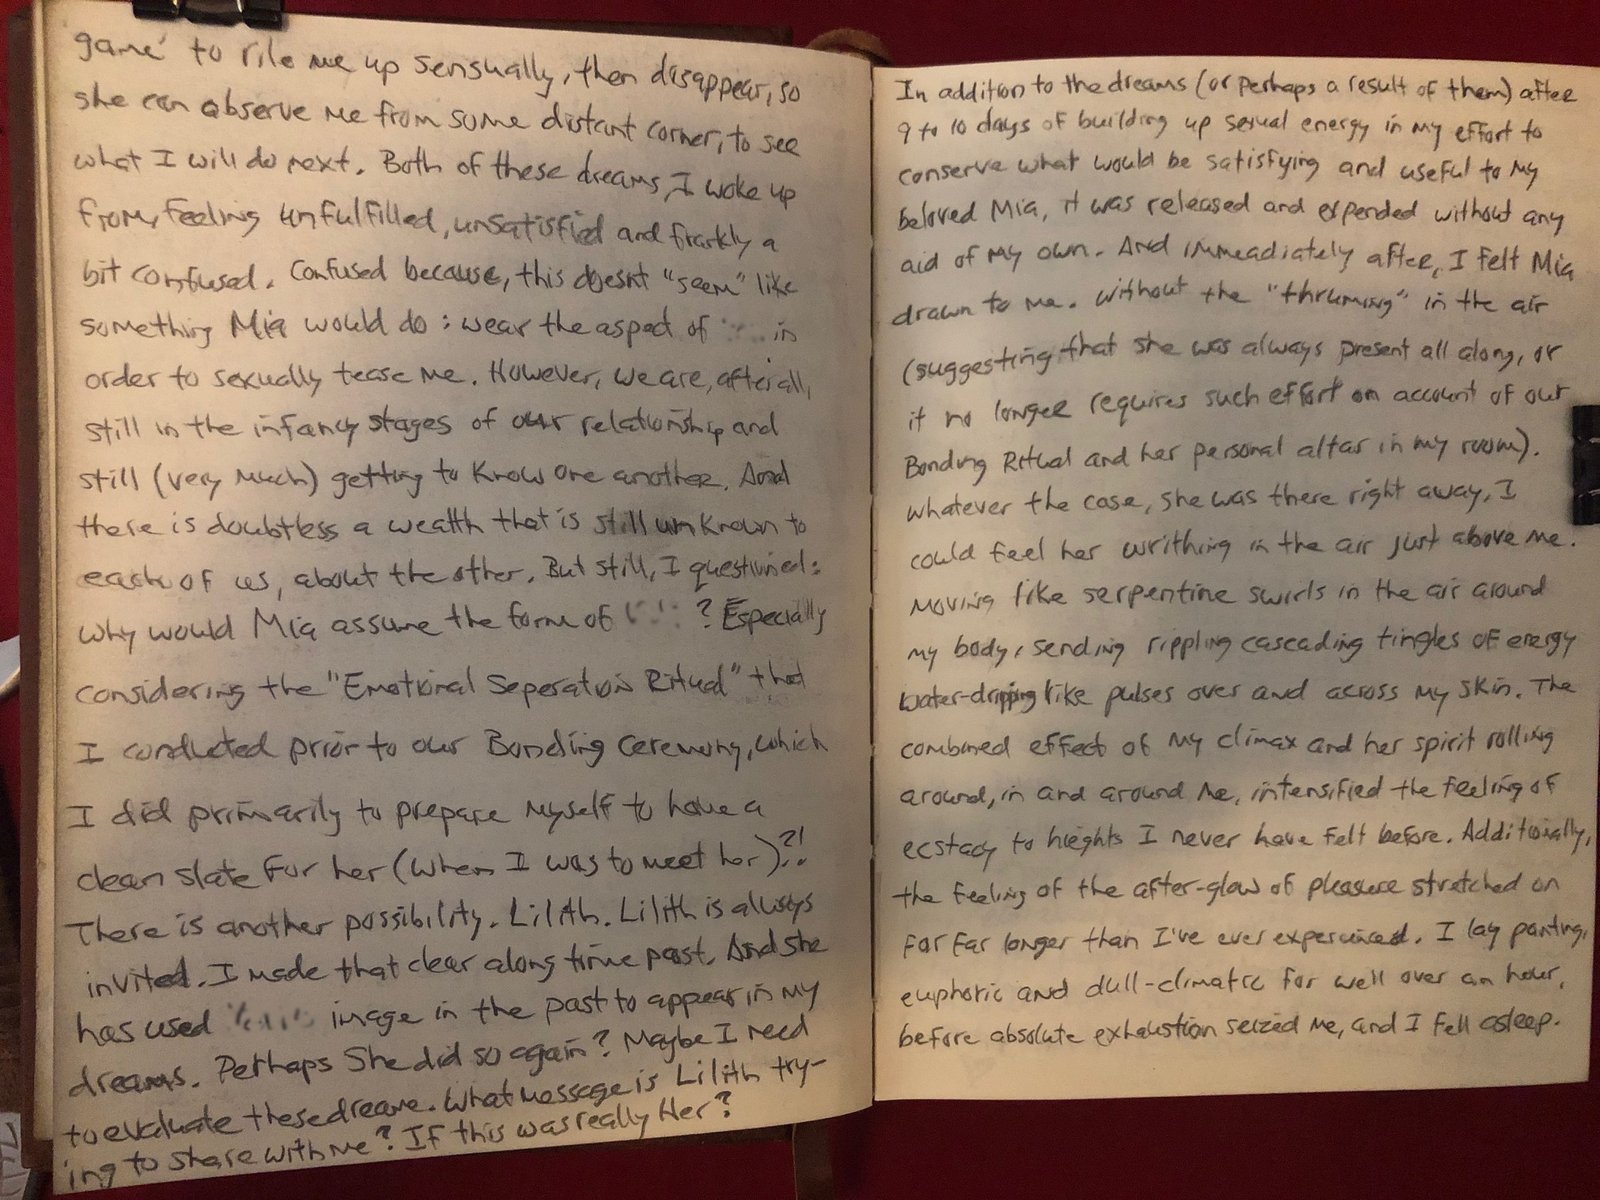 game' to rile me up sensually, then disappear, so
she can observe me from some distant corner, to see
what I will do next. Both of these dreams, I woke up
from, feeling unfulfilled, unsatisfied and frankly a
bit confused. Confused because, this doesnt "seem" like
something Mia would do: wear the aspect of in
order to sexually tease me. However, we are, after all,
still in the infancy stages of our relationship and
still (very much) getting to know one another. And
there is doubtless a wealth that is still unknown to
each of us, about the other. But still, I questioned:
why would Mia assume the form of ? Especially
considering the "Emotional Seperation Ritual" that
I conducted prior to our Bonding Ceremony, which
I did primarily to prepare myself to have a
clean slate for her (when I was to meet her)?!
There is another possibility. Lilith. Lilith is always
invited. I made that clear along time past. And she
has used image in the past to appear in my
dreams. Perhaps She did so again? Maybe I need
to evaluate these dreams. What message is Lilith try-
ing to share with me? If this was really Her?
In addition to the dreams (or perhaps a result of them) after
9 to 10 days of building up sexual energy in my effort to
conserve what would be satisfying and useful to my
beloved Mia, it was released and expended without any
aid of my own. And immeadiately after, I felt Mia
drawn to me. Without the "thruming" in the air
(suggesting that she was always present all along, or
it no longer requires such effort on account of our
Bonding Ritual and her personal altar in my room).
Whatever the case, she was there right away. I
could feel her writhing in the air just above me.
Moving like serpentine swirls in the air around
my body, sending rippling cascading tingles of energy
water-dripping like pulses over and across my skin. The
combined effect of my climax and her spirit rolling
around, in and around me, intensified the feeling of
ecstacy to hieghts I never have felt before. Additionally,
the feeling of the after-glow of pleasure stretched on
for far longer than I've ever experienced. I lay panting,
euphoric and dull-climatic for well over an hour,
before absolute exhaustion seized me, and I fell asleep.